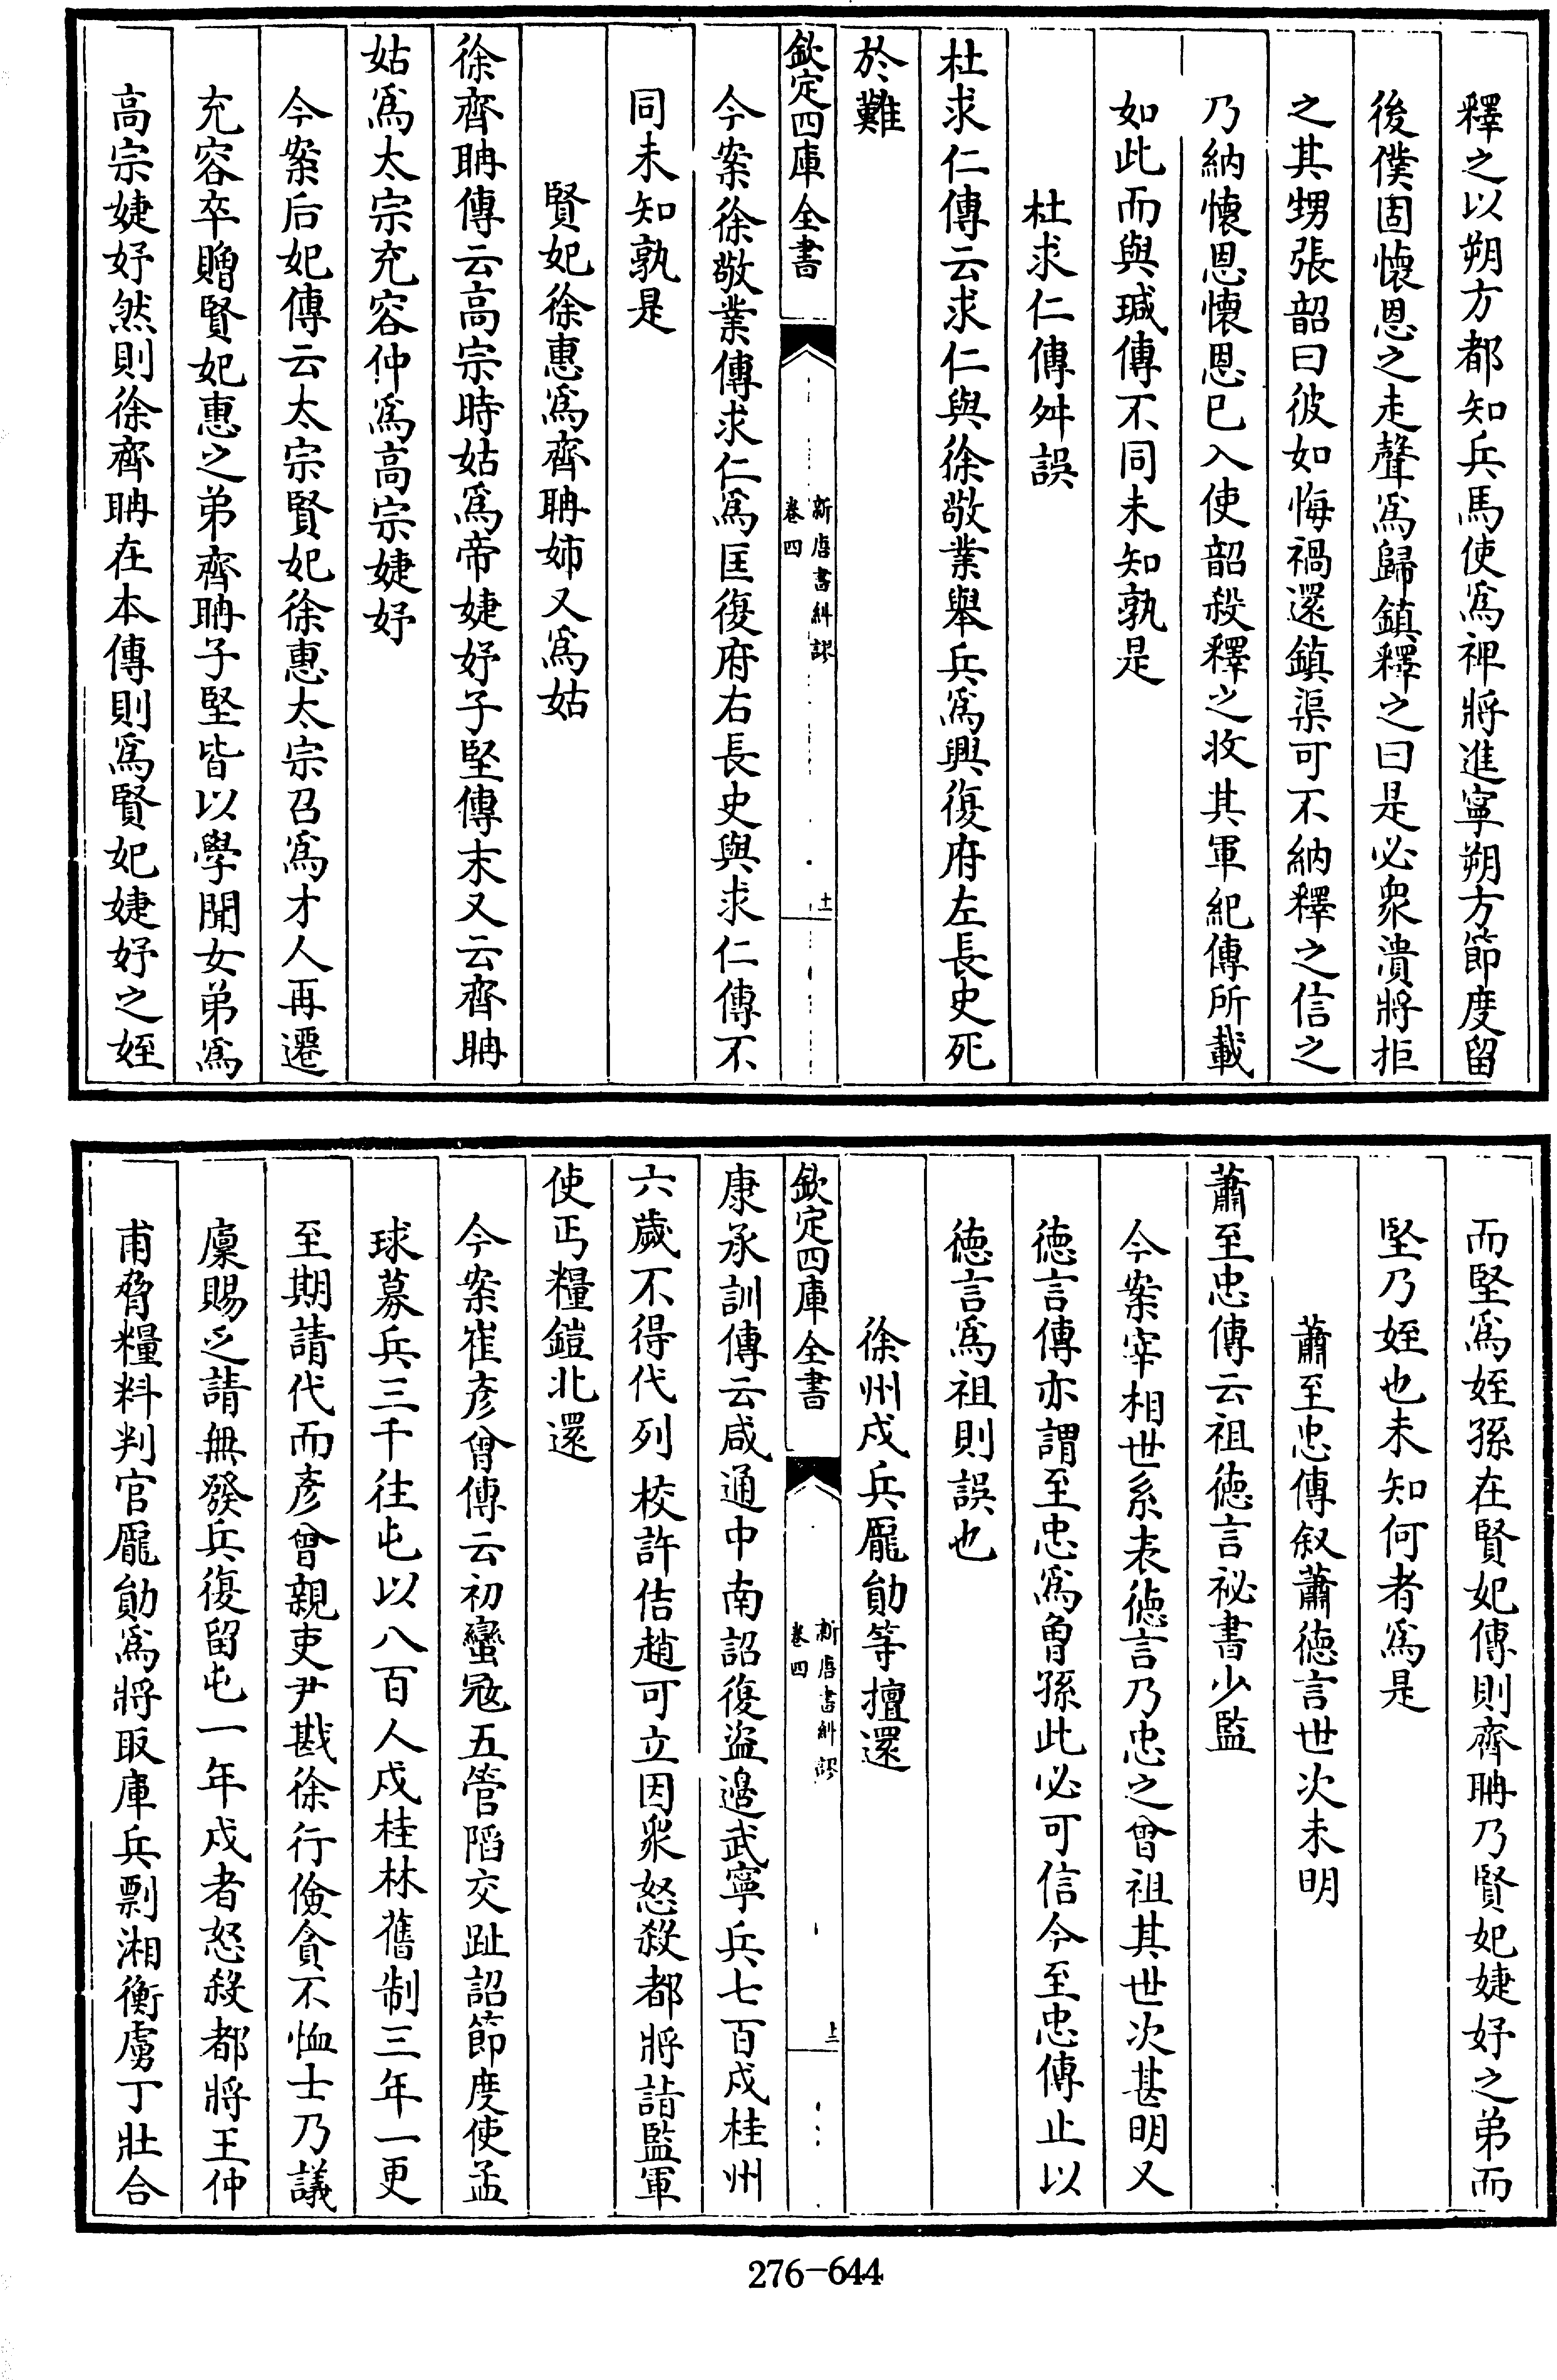 釋之以朔方都知兵馬使爲裨將進寧朔方節度留
後僕固懷恩之走聲爲歸鎮釋之曰是必衆潰將拒
之其甥張韶曰彼如悔禍還鎮渠可不納釋之信之
乃納懷恩懷恩已入使韶殺釋之收其軍紀傳所載
如此而與瑊傳不同未知孰是
杜求仁傳舛誤
杜求仁傳云求仁與徐敬業舉兵爲興復府左長史死
於難
欽定四庫全書
新唐書糾謬
卷四
十一
今案徐敬業傳求仁爲匡復府右長史與求仁傳不
同未知孰是
賢妃徐惠爲齊聃姉又爲姑
徐齊聃傳云高宗時姑爲帝婕妤子堅傳末又云齊聃
姑爲太宗充容仲爲高宗婕妤
今案后妃傳云太宗賢妃徐惠太宗召爲才人再遷
充容卒贈賢妃惠之弟齊聃子堅皆以學聞女弟爲
高宗婕妤然則徐齊聃在本傳則爲賢妃婕妤之姪
而堅爲姪孫在賢妃傳則齊聃乃賢妃婕妤之弟而
堅乃姪也未知何者爲是
蕭至忠傳叙蕭徳言世次未明
蕭至忠傳云祖徳言祕書少監
今案宰相世系表徳言乃忠之曾祖其世次甚明又
徳言傳亦謂至忠爲曾孫此必可信今至忠傳止以
徳言爲祖則誤也
徐州戍兵龎勛等擅還
欽定四庫全書
新唐書糾謬
卷四
十二
康承訓傳云咸通中南詔復盜邉武寧兵七百戍桂州
六歲不得代列校許佶趙可立因衆怒殺都將詣監軍
使丐糧鎧北還
今案崔彦曾傳云初蠻冦五管陷交趾詔節度使孟
球募兵三千往屯以八百人戍桂林舊制三年一更
至期請代而彦曾親吏尹戡徐行儉貪不恤士乃議
廩賜乏請無發兵復留屯一年戍者怒殺都將王仲
甫脅糧料判官龎勛爲將取庫兵剽湘衡虜丁壯合
276-644